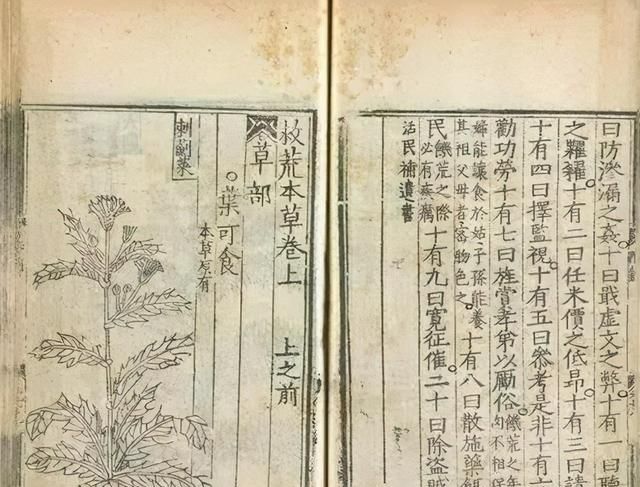 曰防滲漏之姦十曰戢虛文之弊十有一曰聽
之糶糴十有二曰任米價之低昂十有三曰請
十有四曰擇監視十有五曰參考是非十有六
勸功勞十有七曰旌賞孝弟以勵俗饑荒之年
不相保
婦能讓食於姑子孫能養
其祖父母者物色之十有八曰散施藥餌
民饑荒之際
必有疾癘十有九曰寬征催二十曰除盜賊
活民補遺書
救荒本草卷上 上之前
草部
葉可食
本草原有
刺薊菜